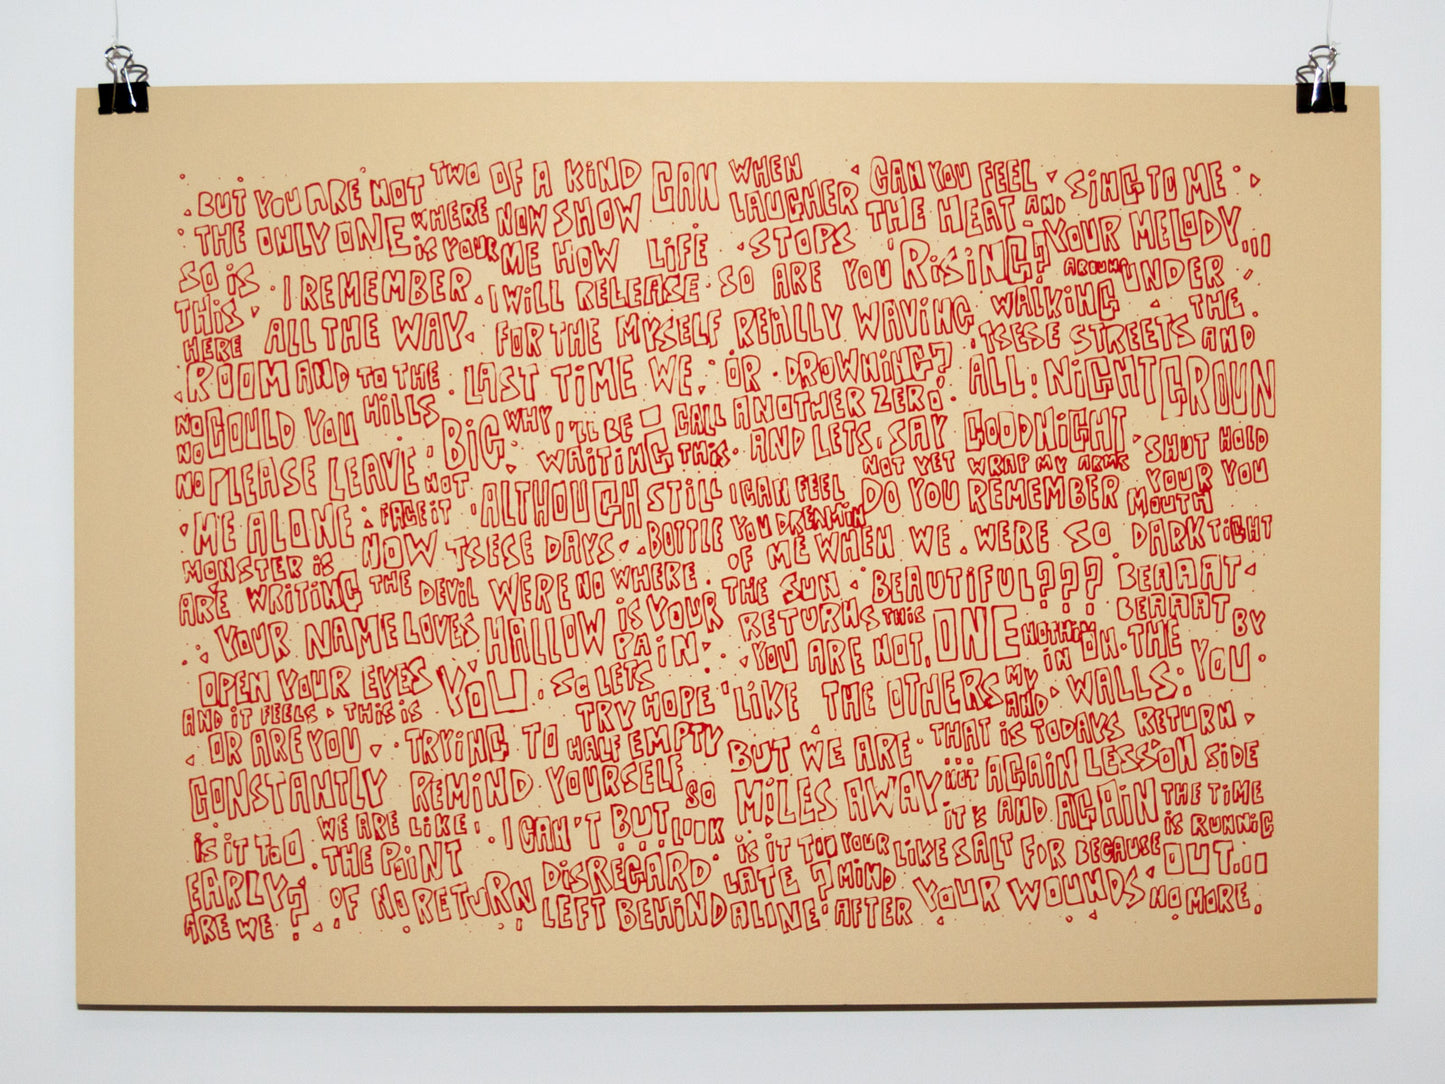 BUT YOU ARE NOT TWO OF A KIND CAN WHEN CAN YOU FEEL SING TO ME
THE ONLY ONE WHERE NOW SHOW LAUGHER THE HEAT AND YOUR MELODY...
SO IS IS YOUR ME HOW LIFE STOPS RISING? AROUND UNDER
THIS I REMEMBER I WILL RELEASE SO ARE YOU WALKING THE
HERE ALL THE WAY FOR THE MYSELF REALLY WAVING TSESE STREETS AND
ROOM AND TO THE LAST TIME WE OR DROWNING? ALL NIGHT GROUN
NO COULD YOU HILLS BIG WHY I'LL BE CALL ANOTHER ZERO
NO PLEASE LEAVE WAITING THIS AND LETS SAY GOODNIGHT SHUT HOLD
NO ME ALONE NOT ALTHOUGH STILL I CAN FEEL NOT YET WRAP MY ARMS YOUR YOU
FACE IT DO YOU REMEMBER MOUTH
MONSTER IS NOW TSESE DAYS BOTTLE YOU DREAMIN OF ME WHEN WE WERE SO DARK TIGHT
ARE WRITING THE DEVIL WERE NO WHERE THE SUN BEAUTIFUL??? BEAAAT
YOUR NAME LOVES HALLOW IS YOUR RETURNS THIS ONE BEAAAT BY
OPEN YOUR EYES YOU PAIN YOU ARE NOT NOTHIN ON THE YOU
AND IT FEELS THIS IS SO LETS LIKE THE OTHERS MY IN WALLS
OR ARE YOU TRYING TO TRY HOPE AND THAT IS TODAYS RETURN
HALF EMPTY BUT WE ARE NOT AGAIN LESSON SIDE
CONSTANTLY REMIND YOURSELF SO MILES AWAY IT'S AND AGAIN THE TIME
IS IT TOO WE ARE LIKE I CAN'T BUT LOOK IS IT TOO YOUR LIKE SALT FOR BECAUSE IS RUNNIG
EARLY? THE POINT DISREGARD LATE? MIND YOUR WOUNDS OUT...
ARE WE OF NO RETURN LEFT BEHIND ALINE AFTER NO MORE.